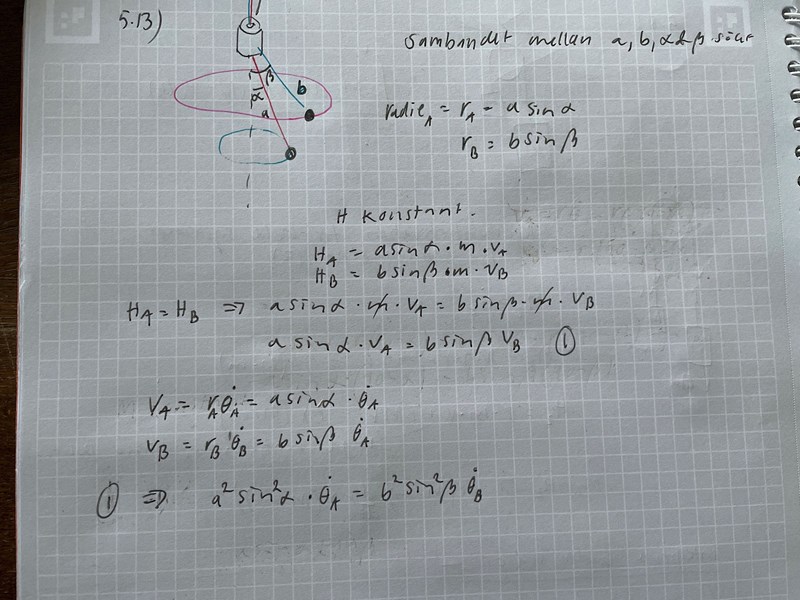 5.13)
Sambandet mellan a, b, α & β sökt
β
α
b
a
radie_A = r_A = a sin α
r_B = b sin β
H konstant.
H_A = a sin α · m · v_A
H_B = b sin β · m · v_B
H_A = H_B ⇒ a sin α · m · v_A = b sin β · m · v_B
a sin α · v_A = b sin β v_B ①
v_A = r_A θ̇_A = a sin α · θ̇_A
v_B = r_B θ̇_B = b sin β θ̇_A
① ⇒ a² sin² α · θ̇_A = b² sin² β θ̇_B